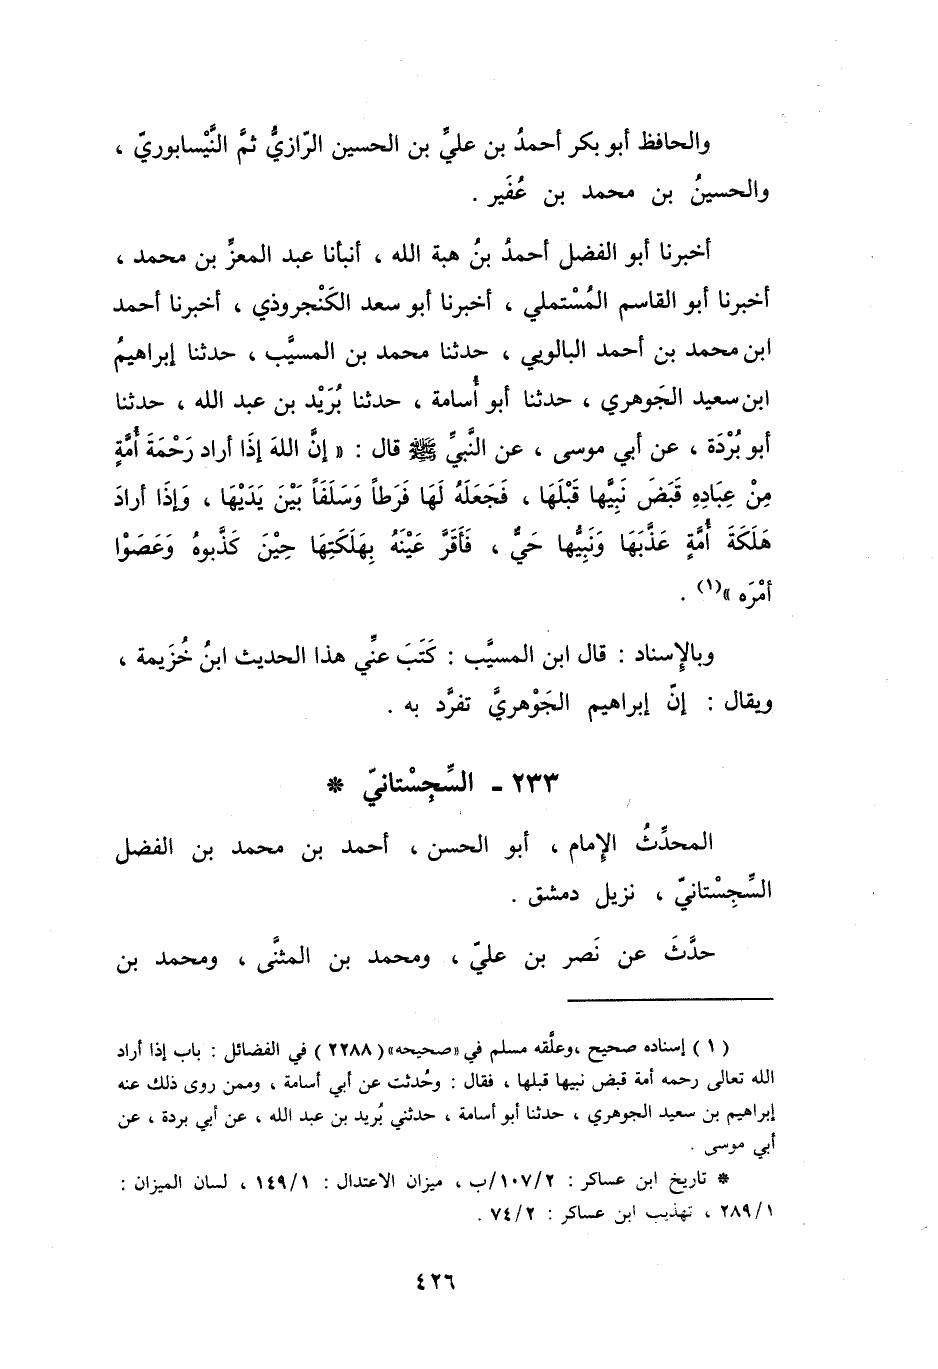 والحافظ أبو بكر أحمدُ بن عليِّ بن الحسين الرّازيُّ ثمَّ النَّيْسابوريّ ،
والحسينُ بن محمد بن عُفَير .
أخبرنا أبو الفضل أحمدُ بنُ هبة الله ، أنبأنا عبد المعزِّ بن محمد ،
أخبرنا أبو القاسم المُسْتملي ، أخبرنا أبو سعد الكَنْجروذي ، أخبرنا أحمد
ابن محمد بن أحمد البالويي ، حدثنا محمد بن المسيَّب ، حدثنا إبراهيمُ
ابن سعيد الجَوهري ، حدثنا أبو أُسامة ، حدثنا بُرَيْد بن عبد الله ، حدثنا
أبو بُرْدَة ، عن أبي موسى ، عن النَّبيِّ ﷺ قال : « إنَّ اللهَ إذَا أراد رَحْمَةَ أُمَّةٍ
مِنْ عِبَادِهِ قَبَضَ نَبِيَّها قَبْلَها ، فَجَعَلَهُ لَهَا فَرَطاً وَسَلَفَاً بَيْنَ يَدَيْهَا ، وَإذَا أرادَ
هَلَكَةَ أُمَّةٍ عَذَّبَهَا وَنَبِيُّها حَيٌّ ، فَأَقَرَّ عَيْنَهُ بِهَلَكَتِهَا حِيْنَ كَذَّبوهُ وَعَصَوْا
أمْرَه »(١) .
وبالإِسناد : قال ابن المسيَّب : كَتَبَ عنِّي هذا الحديث ابنُ خُزَيمة ،
ويقال : إنّ إبراهيم الجَوْهريَّ تفرَّد به .
٢٣٣ - السِّجِسْتانيّ *
المحدِّثُ الإِمام ، أبو الحسن ، أحمد بن محمد بن الفضل
السِّجِسْتانيّ ، نزيل دمشق .
حدَّثَ عن نَصر بن عليّ ، ومحمد بن المثنَّى ، ومحمد بن
( ١ ) إسناده صحيح ،وعلَّقه مسلم في «صحيحه»( ٢٢٨٨ ) في الفضائل : باب إذا أراد
الله تعالى رحمه أمة قبض نبيها قبلها ، فقال : وحُدثت عن أبي أسامة ، وممن روى ذلك عنه
إبراهيم بن سعيد الجوهري ، حدثنا أبو أسامة ، حدثني بُريد بن عبد الله ، عن أبي بردة ، عن
أبي موسى .
* تاريخ ابن عساكر : ١٠٧/٢/ب ، ميزان الاعتدال : ١٤٩/١ ، لسان الميزان :
٢٨٩/١ ، تهذيب ابن عساكر : ٧٤/٢ .
٤٢٦